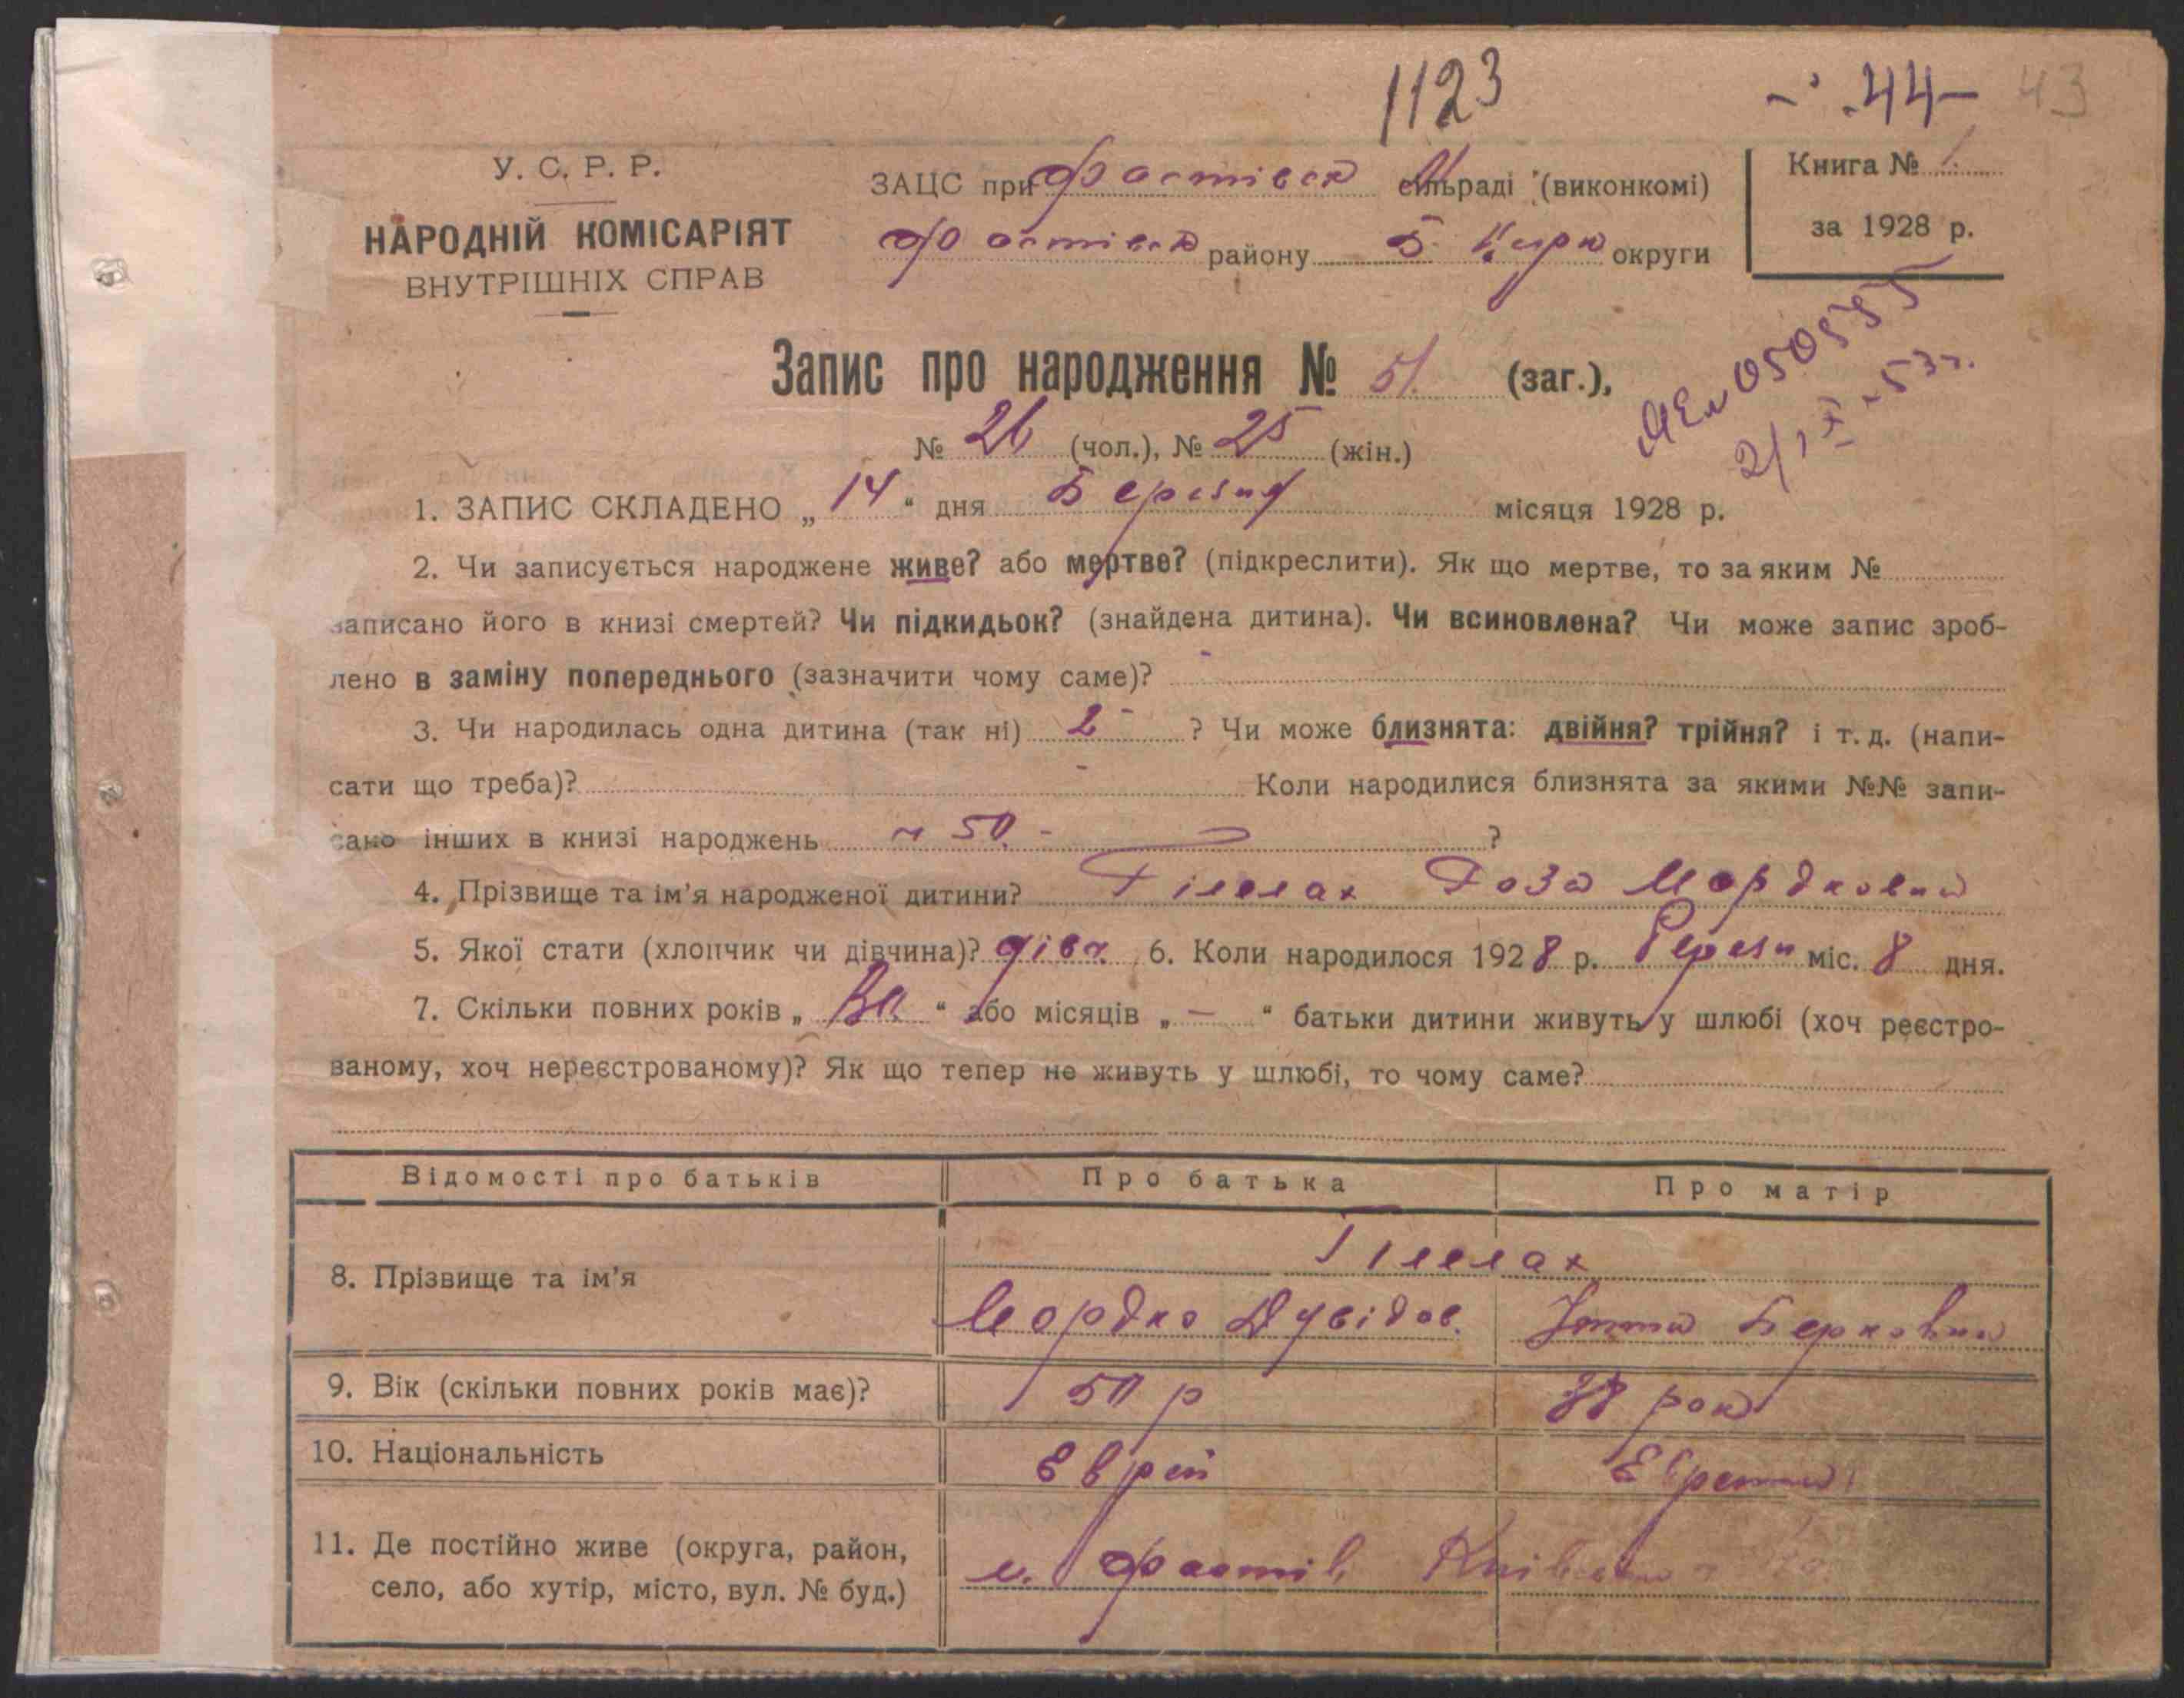 1123
-44- 43
У. С. Р. Р.
НАРОДНІЙ КОМІСАРІЯТ
ВНУТРІШНІХ СПРАВ
ЗАЦС при Фастівск сільраді (виконкомі)
Фастівск району Б. Церк округи
Книга № 1.
за 1928 р.
Запис про народження № 51. (заг.),
№ 26 (чол.), № 25 (жін.)
1. ЗАПИС СКЛАДЕНО „ 14 “ дня Березня місяця 1928 р.
2. Чи записується народжене живе? або мертве? (підкреслити). Як що мертве, то за яким №
записано його в книзі смертей? Чи підкидьок? (знайдена дитина). Чи всиновлена? Чи може запис зроб-
лено в заміну попереднього (зазначити чому саме)?
3. Чи народилась одна дитина (так ні) 2 ? Чи може близнята: двійня? трійня? і т. д. (напи-
сати що треба)? - Коли народилися близнята за якими №№ запи-
сано інших в книзі народжень 50. - ?
4. Прізвище та ім'я народженої дитини? Гіллах Роза Мордковна
5. Якої стати (хлопчик чи дівчина)? дівч. 6. Коли народилося 1928 р. Березн міс. 8 дня.
7. Скільки повних років „ “ або місяців „ – “ батьки дитини живуть у шлюбі (хоч реєстро-
ваному, хоч нереєстрованому)? Як що тепер не живуть у шлюбі, то чому саме?
Відомості про батьків Про батька Про матір
8. Прізвище та ім'я Гіллах
Мордко Дувідов. Берковна
9. Вік (скільки повних років має)? 50 р 38 рок
10. Національність Еврей Еврейка
11. Де постійно живе (округа, район,
село, або хутір, місто, вул. № буд.) м. Фастів